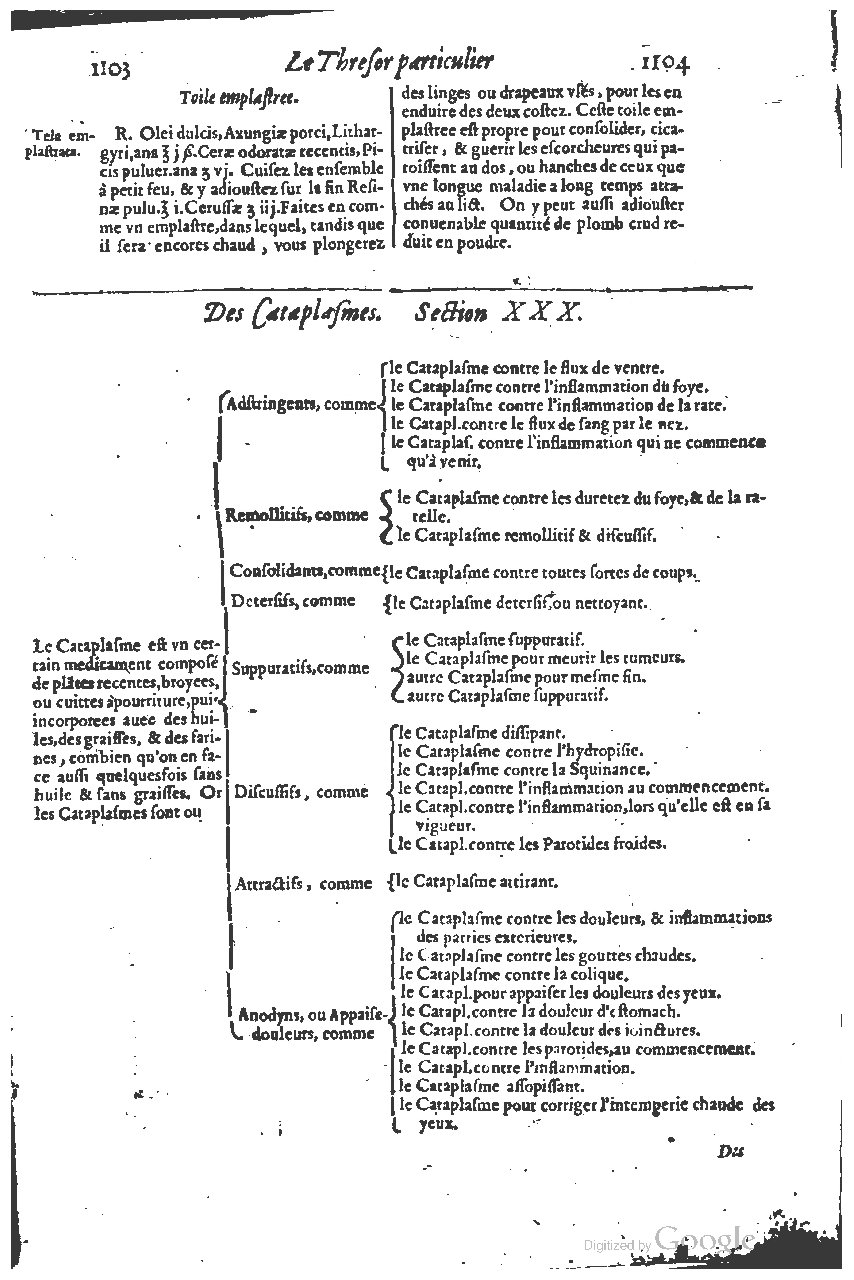 1103
Le Thresor particulier
1104
Toile emplastree.
Tela em-
plastrata.
R. Olei dulcis, Axungiæ porci, Lithar-
gyri, ana ʒ j ß. Ceræ odoratæ recentis, Pi-
cis puluer. ana ʒ vj. Cuisez les ensemble
à petit feu, & y adioustez sur la fin Resi-
næ pulu. ʒ i. Cerussæ ʒ iij. Faites en com-
me vn emplastre, dans lequel, tandis que
il sera encores chaud, vous plongerez
des linges ou drapeaux vsés, pour les en
enduire des deux costez. Ceste toile em-
plastree est propre pour consolider, cica-
triser, & guerir les escorcheures qui pa-
roissent au dos, ou hanches de ceux que
vne longue maladie a long temps atta-
chés au lict. On y peut aussi adiouster
conuenable quantité de plomb crud re-
duit en poudre.
Des Cataplasmes. Section XXX.
Le Cataplasme est vn cer-
tain medicament composé
de plâtes recentes, broyees,
ou cuittes à pourriture, puis
incorporees auec des hui-
les, des graisses, & des fari-
nes, combien qu'on en fa-
ce aussi quelquesfois sans
huile & sans graisses. Or
les Cataplasmes sont ou
Adstringents, comme
le Cataplasme contre le flux de ventre.
le Cataplasme contre l'inflammation du foye.
le Cataplasme contre l'inflammation de la rate.
le Catapl. contre le flux de sang par le nez.
le Cataplas. contre l'inflammation qui ne commence
qu'à venir.
Remollitifs, comme
le Cataplasme contre les duretez du foye, & de la ra-
telle.
le Cataplasme remollitif & discussif.
Consolidants, comme
le Cataplasme contre toutes sortes de coups.
Detersifs, comme
le Cataplasme detersif, ou nettoyant.
Suppuratifs, comme
le Cataplasme suppuratif.
le Cataplasme pour meurir les tumeurs.
autre Cataplasme pour mesme fin.
autre Cataplasme suppuratif.
Discussifs, comme
le Cataplasme dissipant.
le Cataplasme contre l'hydropisie.
le Cataplasme contre la Squinance.
le Catapl. contre l'inflammation au commencement.
le Catapl. contre l'inflammation, lors qu'elle est en sa
vigueur.
le Catapl. contre les Parotides froides.
Attractifs, comme
le Cataplasme attirant.
Anodyns, ou Appaise-
douleurs, comme
le Cataplasme contre les douleurs, & inflammations
des parties exterieures.
le Cataplasme contre les gouttes chaudes.
le Cataplasme contre la colique.
le Catapl. pour appaiser les douleurs des yeux.
le Catapl. contre la douleur d'estomach.
le Catapl. contre la douleur des ioinctures.
le Catapl. contre les parotides, au commencement.
le Catapl. contre l'inflammation.
le Cataplasme assopissant.
le Cataplasme pour corriger l'intemperie chaude des
yeux.
Du
Digitized by Google